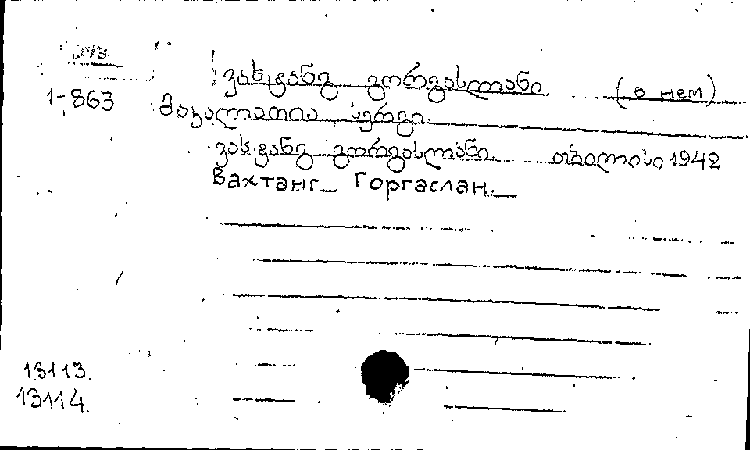 ვახტანგ გორგასლანი (о нем)
1-863 მაკალათია სერგი.
ვახტანგ გორგასლანი. თბილისი 1942
Вахтанг Горгаслан.
13113.
13114.